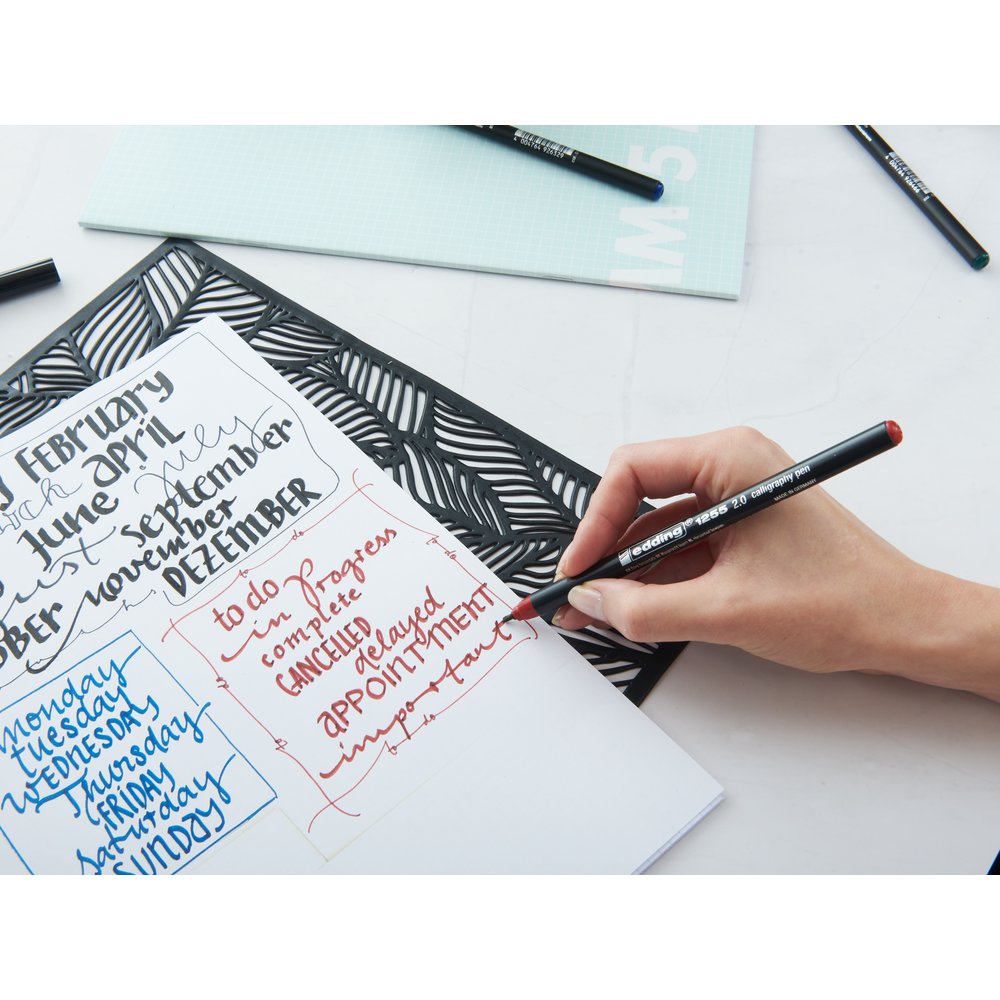 FEBRUARY
April
June
July
September
November
DEZEMBER
to do
in Progress
complete
CANCELLED
delayed
APPOINTMENT
important
Monday
Tuesday
WEDNESDAY
Thursday
FRIDAY
Saturday
SUNDAY
edding® 1255 2.0 calligraphy pen
MADE IN GERMANY
4 004764 926329